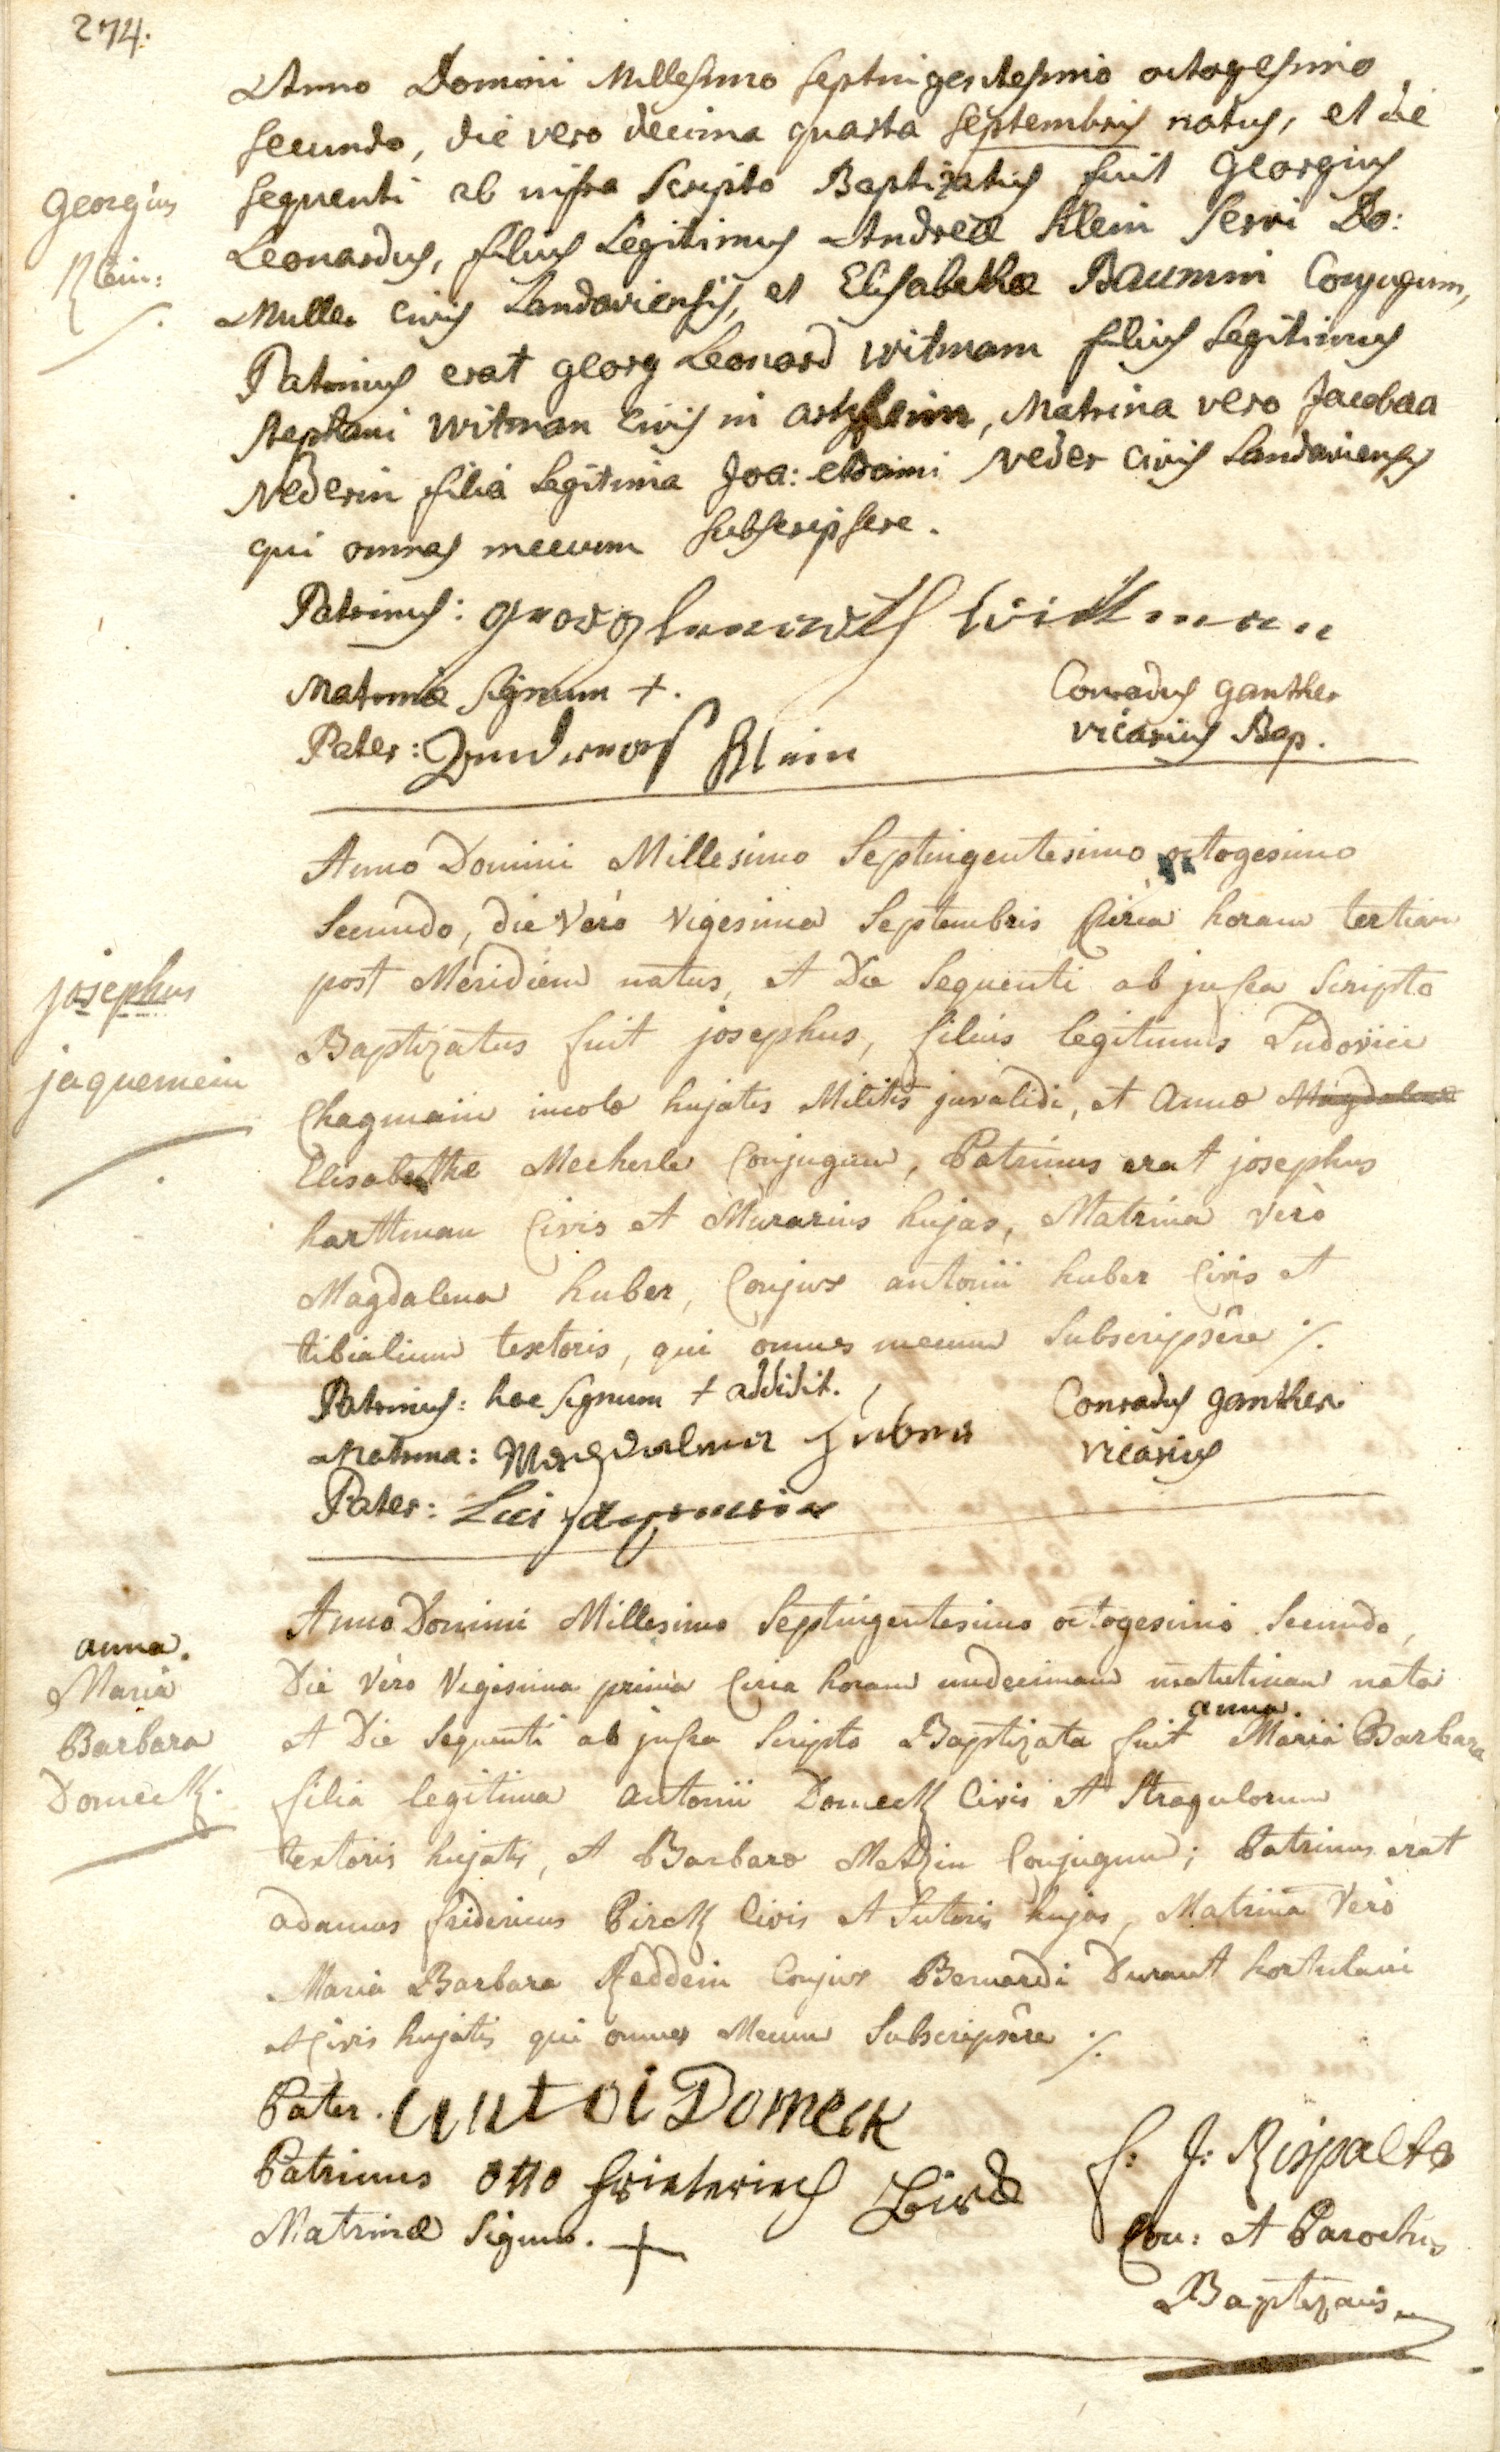 274.
Anno Domini Millesimo septingentesimo octogesimo
secundo, die vero decima quarta septembris natus, et die
sequenti ab infra scripto Baptizatus fuit Georgius
Georgius
Leonardus, filius Legitimus Andreæ Klein servi Do:
Klein:
Muller civis Landaviensis, et Elisabethæ Baumin Conjugum,
Patrinus erat georg Leonard witmann filius Legitimus
stephani witman civis in, Matrina vero Jacobaa
Nederin filia Legitima Joa: Adami Neder civis Landaviensis
qui omnes mecum subscripsere.
Patrinus: georg witman
Matrinæ signum +.
Conradus ganther
Pater: Andreas Klein
vicarius Bap.
Anno Domini Millesimo Septingentesimo octogesimo
Secundo, die Verò Vigesima Septembris Circa horam tertiam
post Meridiem natus, et Die Sequenti ab infra Scripto
josephus
Baptizatus fuit josephus, filius legitimus Ludovici
jaquemein
incolæ hujatis Militis invalidi, et Annæ Magdalenæ
Elisabethæ Mecherle Conjugum, Patrinus erat josephus
harttman Civis et Murarius hujas, Matrina Verò
Magdalena huber, Conjux antonii huber Civis et
tibialium textoris, qui omnes mecum Subscripsêre ./.
Patrinus: hoc signum + addidit.
Conradus ganther
Matrina: Magdalena Huberin
vicarius
Pater:
Anno Domini Millesimo Septingentesimo octogesimo Secundo,
anna.
Die Verò Vigesima prima Circa horam undecimam matutinam nata
Maria
anna.
et Die Sequenti ab infra Scripto Baptizata fuit Maria Barbara
Barbara
filia legitima antonii Domeck Civis et Stragulorum
Domeck.
textoris hujatis, et Barbaræ Metzin Conjugum; Patrinus erat
adamus fridericus Birck Civis et Sutoris hujas, Matrina Verò
Maria Barbara Reddein Conjux Bernardi Durant hortulani
et Civis hujatis qui omnes Mecum Subscripsêre ./.
Pater. antoi Domeck
Patrinus otto
f. J. Rispalts
Matrinæ Signum. +
Can: et Parochus
Baptizans